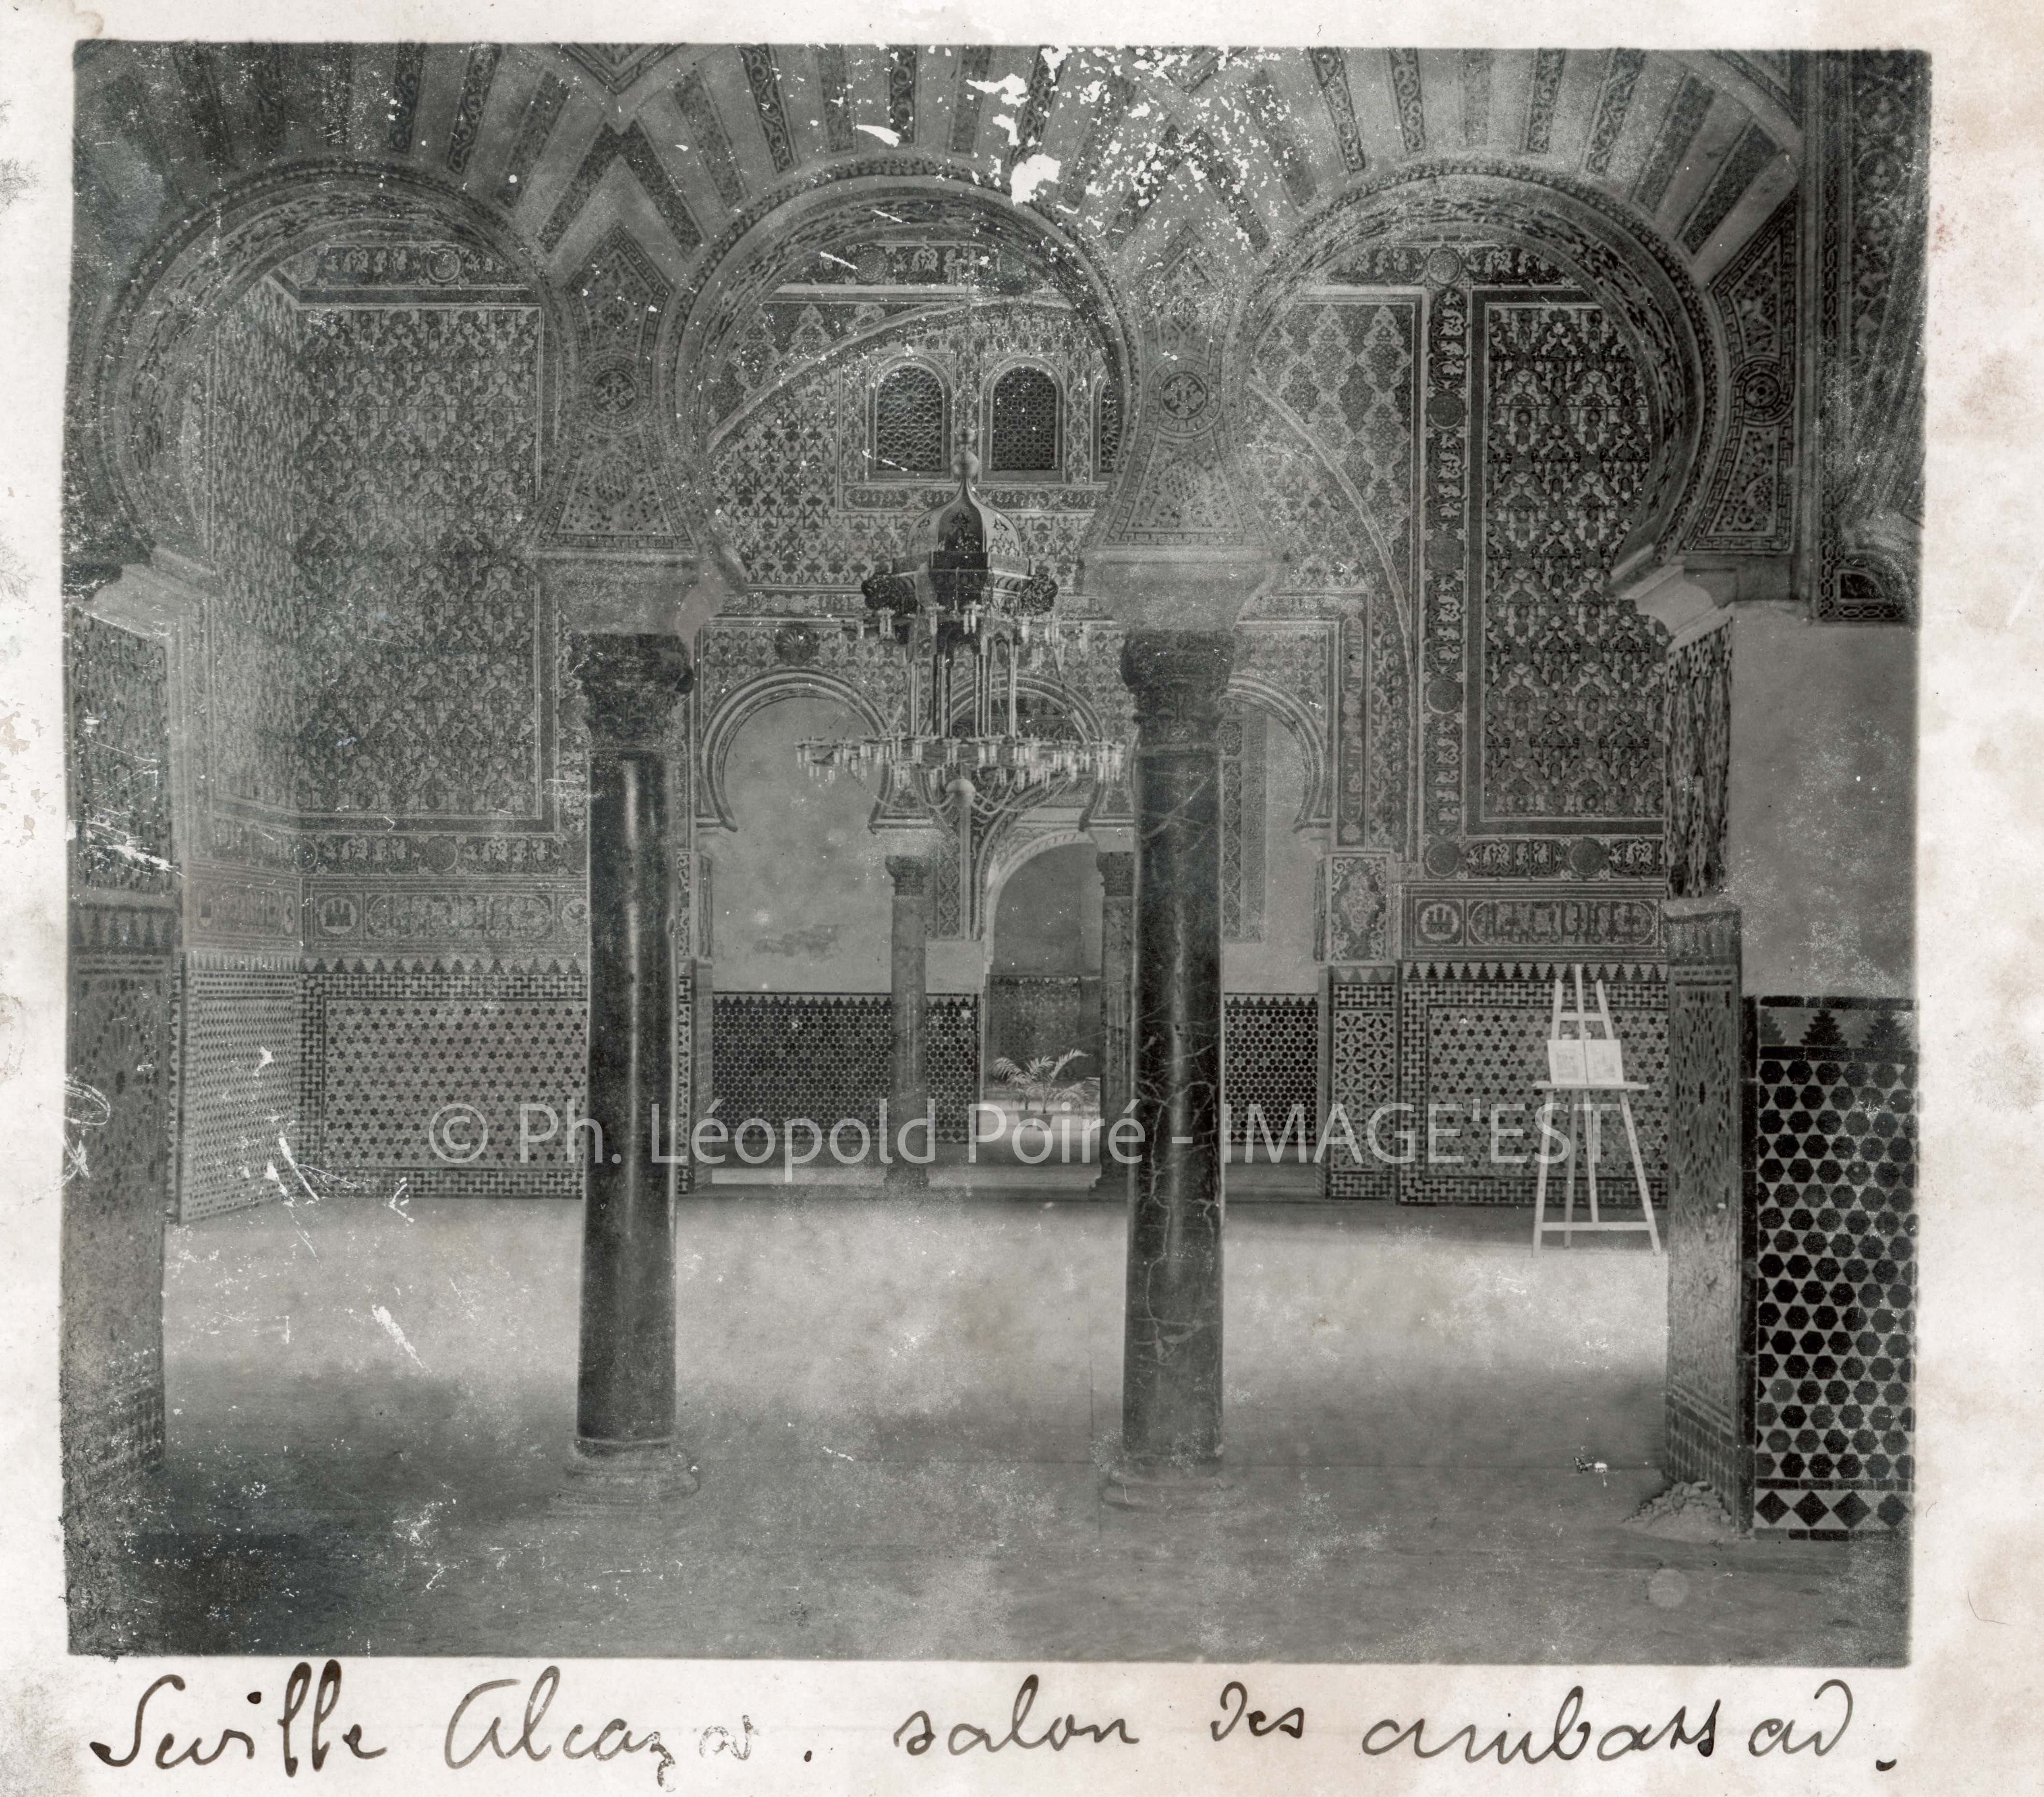 © Ph. Léopold Poiré - IMAGE'EST
Seville Alcazar. salon des ambassad.